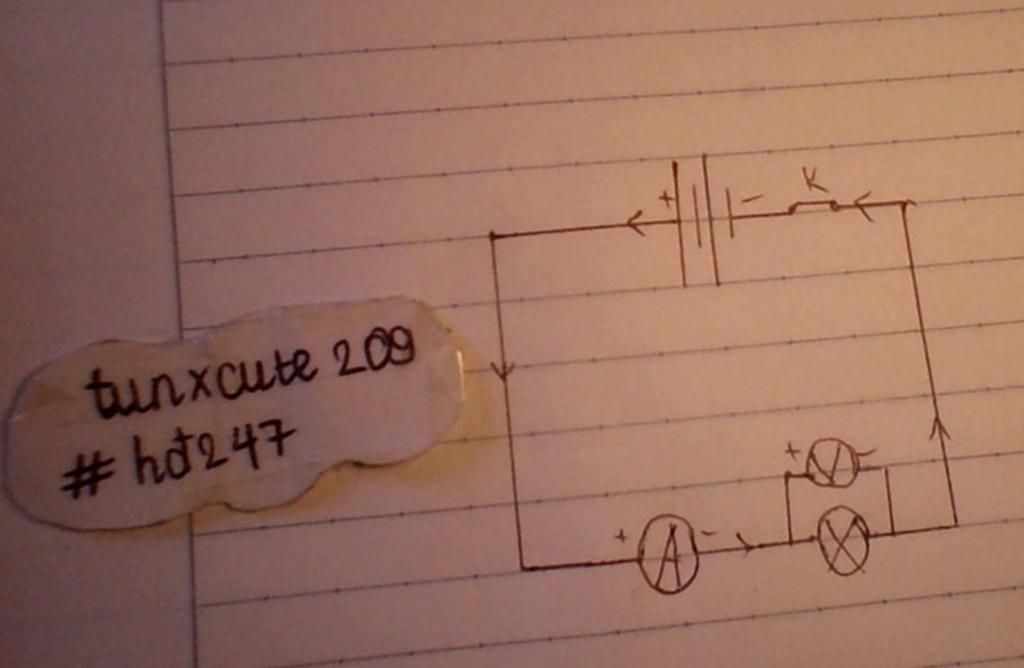 tunxcute 209
# hdt247
+ -
K
+ V -
+ A -